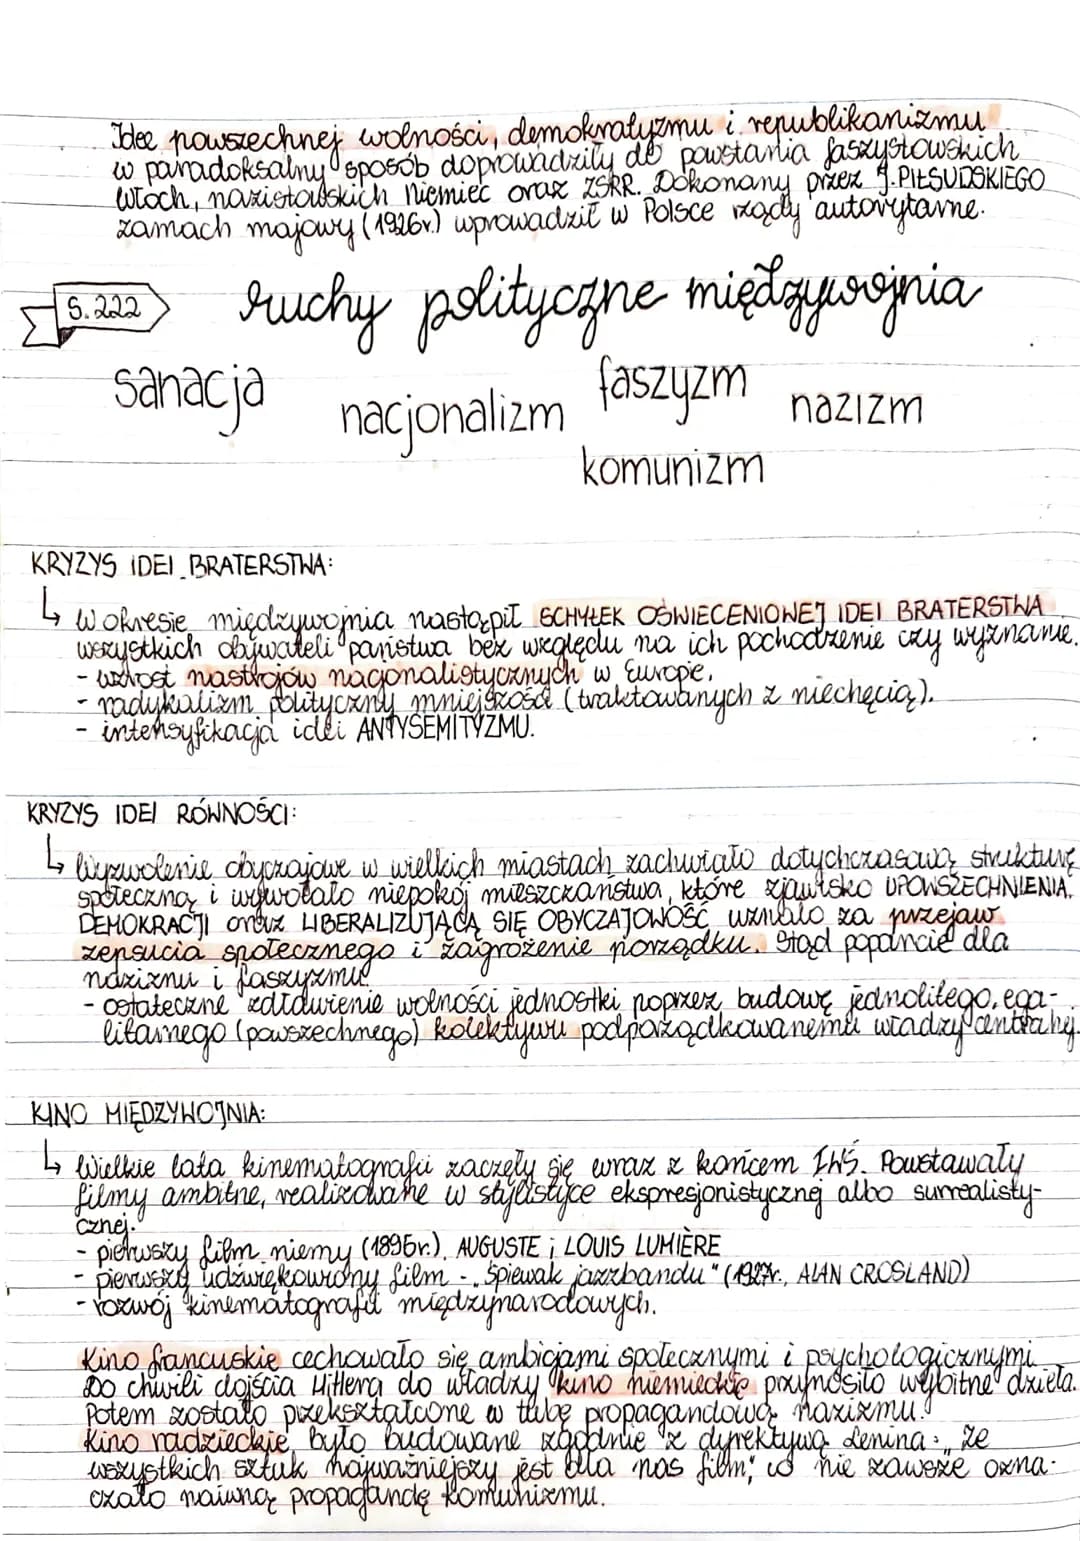 Idee powszechnej wolności, demokratyzmu i republikanizmu
w paradoksalny sposób doprowadziły do powstania faszystowskich
Włoch, nazistowskich Niemiec oraz ZSRR. Dokonany przez J.PIŁSUDSKIEGO
zamach majowy (1926r.) wprowadził w Polsce rządy autorytarne.
S.222
ruchy polityczne międzywojnia
sanacja
nacjonalizm
faszyzm
nazizm
komunizm
KRYZYS IDEI BRATERSTWA:
↳ W okresie międzywojnia nastąpił SCHYŁEK OŚWIECENIOWEJ IDEI BRATERSTWA
wszystkich obywateli państwa bez względu na ich pochodzenie czy wyznanie.
- wzrost nastrojów nacjonalistycznych w Europie,
- radykalizm polityczny mniejszości (traktowanych z niechęcią).
- intensyfikacja idei ANTYSEMITYZMU.
KRYZYS IDEI RÓWNOŚCI:
↳ Wyzwolenie obyczajowe w wielkich miastach zachwiało dotychczasową strukturę
społeczną i wywołało niepokój mieszczaństwa, które zjawisko UPOWSZECHNIENIA
DEMOKRACJI oraz LIBERALIZUJĄCĄ SIĘ OBYCZAJOWOŚĆ uznało za przejaw
zepsucia społecznego i zagrożenie porządku. Stąd poparcie dla
nazizmu i faszyzmu
- ostateczne zdławienie wolności jednostki poprzez budowę jednolitego, ega-
litarnego (powszechnego) kolektywu podporządkowanemu władzy centralnej.
KINO MIĘDZYWOJNIA:
↳ Wielkie lata kinematografii zaczęły się wraz z końcem IWŚ. Powstawały
filmy ambitne, realizowane w stylistyce ekspresjonistycznej albo surrealisty-
cznej.
- pierwszy film niemy (1895r.), AUGUSTE i LOUIS LUMIÈRE
- pierwszy udźwiękowiony film - „Śpiewak jazzbandu" (1927r., ALAN CROSLAND)
- rozwój kinematografii międzynarodowych.
Kino francuskie cechowało się ambicjami społecznymi i psychologicznymi.
Do chwili dojścia Hitlera do władzy kino niemieckie przynosiło wybitne dzieła.
Potem zostało przekształcone w tubę propagandową nazizmu.
Kino radzieckie było budowane zgodnie z dyrektywą Lenina: „Ze
wszystkich sztuk najważniejszy jest dla nas film", co nie zawsze ozna-
czało naiwną propagandę komunizmu.